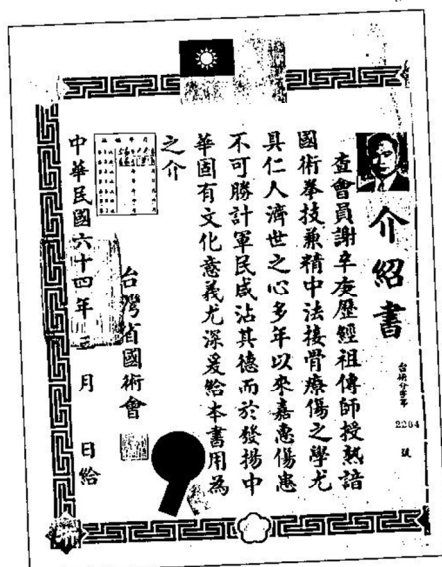 介紹書
台術介字第 2204 號
查會員謝卒庚歷經祖傳師授熟諳
國術拳技兼精中法接骨療傷之學尤
具仁人濟世之心多年以來嘉惠傷患
不可勝計軍民咸沾其德而於發揚中
華固有文化意義尤深爰給本書用為
之介
台灣省國術會
中華民國六十四年 月 日給